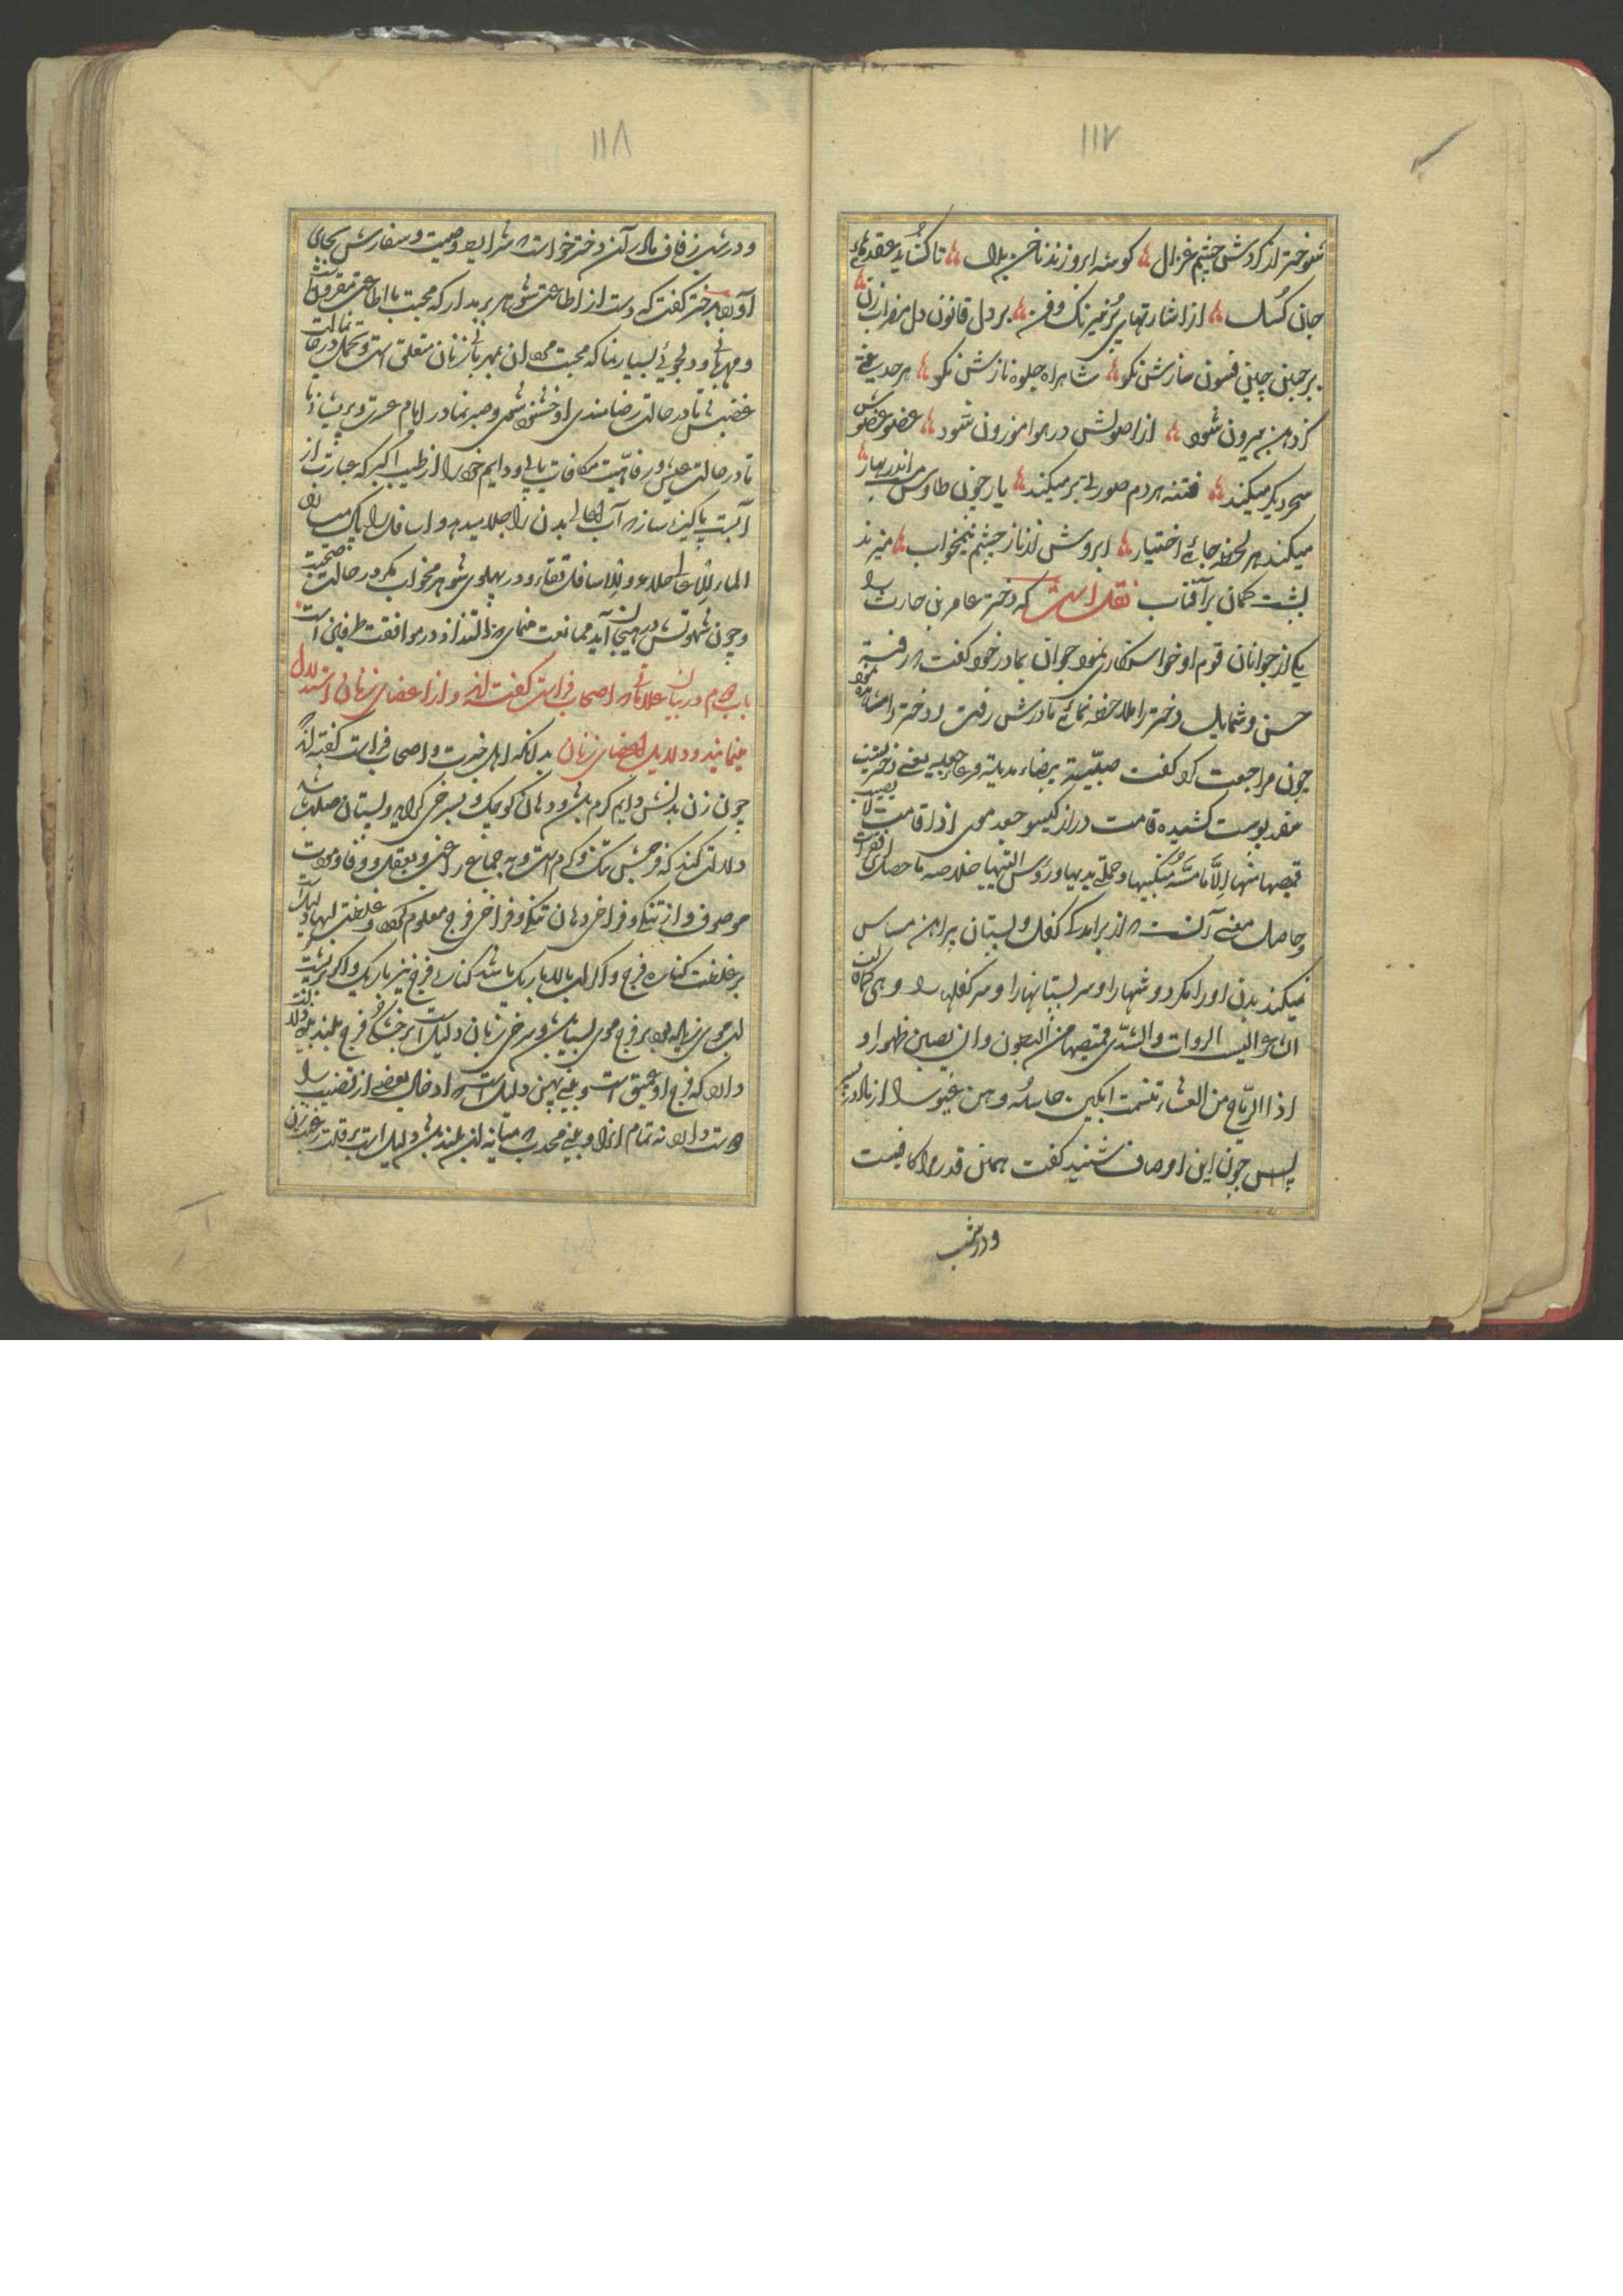 ۱۱۷
شوختر از گردش چشم غزال گوشه ابرو زند ناخن بدل تا گشاید عقدهای
جان گسل از اشارتهای پر نیرنگ و فن بر دل قانون دل مضراب زن
بر جبین چین فسون سازش نکو شاهراه جلوه نازش نکو هر حدیثی
کز دهن بیرون شود از اصولش در هوا موزون شود عضو عضوش
سحر دیگر میکند فتنه هر دم صورتی بر میکند یار چون طاوس اندر بهار
میکند هر لحظه جائی اختیار ابروش از ناز چشم نیمخواب میزند
پشت کمان بر آفتاب نقل است که دختر عامر بن حارث را
یکی از جوانان قوم او خواستکاری نمود جوان بمادر خود گفت که رفته
حسن و شمایل دختر را ملاحظه نمای مادرش رفت و دختر را مشاهده نمود
چون مراجعت کرد گفت صبیّة بیضاء مدیدة فرعاء جعدة یعنی دختریست
سفید پوست کشیده قامت دراز گیسو جعد موی اذا قامت لا یصیب
قمیصها منها الّا مشّة منکبیها و حلمتی ثدییها و رؤس الیتیها خلاصه ماحصل
و حاصل معنی آنست که از برآمدگی کفل و پستان پیراهن مساس
نمیکند بدن او را مگر دوشها را و سر پستانها را و سر کفلها را و هی کما قالت
الشاعر الیس الروات والثدی قمیصها من البطون و ان یصیبن ظهورا و
اذا الریاح من العشا تنسمت ابکین حاسدة و هن غیورا از مادر
پس چون این اوصاف شنید گفت همین قدر مرا کافیست
و در شب
۱۱۸
و در شب زفاف مادر آن دختر خواست که شرایط وصیت و سفارش بجای
آورد بدختر گفت که دست از اطاعت شوهر برمدار که محبت با اطاعت مقرونست
و مهربانی و دلجوئی بسیار نما که محبت مردان بمهربانی زنان متعلق است و تحمل در حالت
غضبش نما تا در حالت رضامندی از او خشنود شوی و صبر نما در ایام عسرت و پریشانی
تا در حالت عیش و رفاهیت مکافات یابی و دایم خود را از طیب اکبر که عبارت از
آبست پاکیزه ساز که آب اعالی بدن را جلا میدهد و اسافل را پاک میسازد
الماء للاعالی جلاء و للاسافل نقاء و در پهلوی شوهر مخواب مگر در حالت صحبت
و چون شهوتش در هیجان آید ممانعت منمای که التذاذ در موافقت طرفین است
باب چهارم در بیان علاماتی که اصحاب فراست گفته‌اند و از اعضای زنان استدلال
مینمایند و دلایل اعضای زنان بدانکه اهل خبرت و اصحاب فراست گفته‌اند
چون زن بدنش دایم گرم باشد و دهان کوچک و بسرخی گراید و پستان صلب باشد
دلالت کند که فرجش تنک و گرم است و به جماع راغب و بعقل و وفا و مروت
موصوف و از تنگی و فراخی دهان تنگی و فراخی فرج معلوم گردد و غلظت لبها دلیلست
بر غلظت کناره فرج و اگر لب بالا باریک باشد کناره فرج نیز باریک و اگر بر پشت
لب موی زیاده بود بر فرج موی بسیار باشد و سرخی زبان دلیل است بر خشکی فرج
دارد که فرج او عمیق است و بینی پهن دلیل است که ادخال بعضی از قضیب را
دوست دارد نه تمام آنرا و بینی محدب که میانه آن بلند باشد دلیل است بر قلت رغبت زن